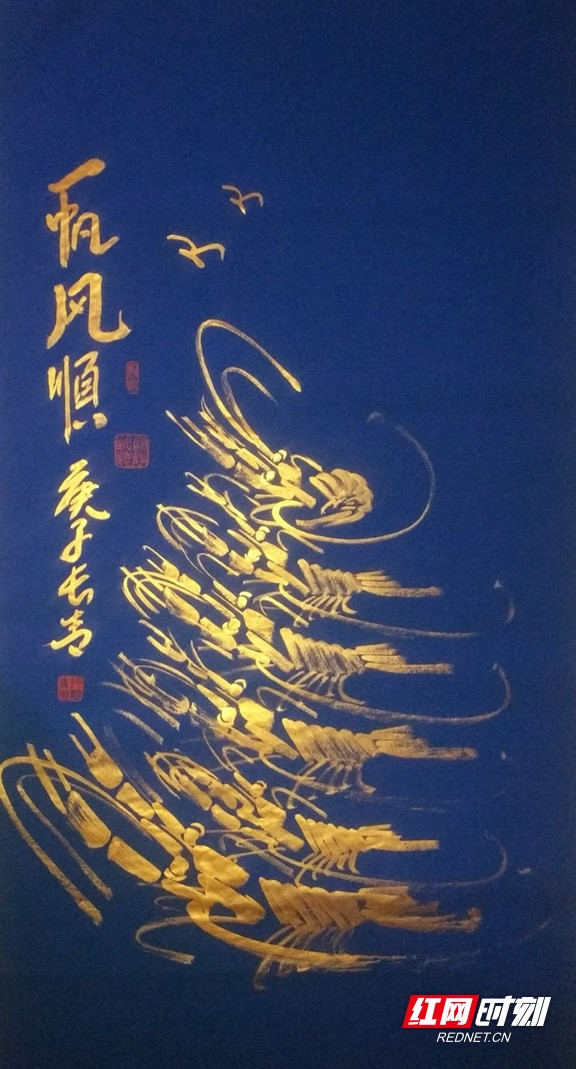 一帆风順
庚子长青
红网时刻
REDNET.CN